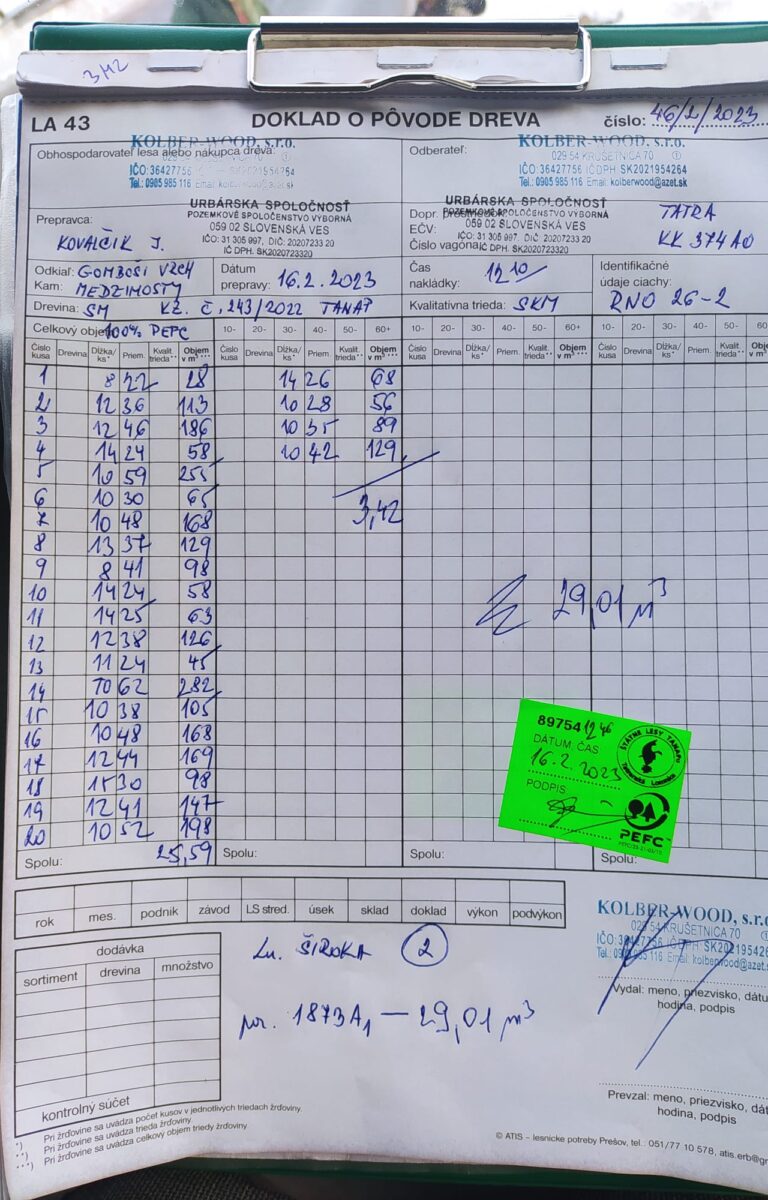 3H2
LA 43 DOKLAD O PÔVODE DREVA číslo: 46/2/2023
Obhospodarovateľ lesa alebo nákupca dreva:
KOLBER-WOOD, s.r.o.
IČO: 36427756
Tel.: 0905 985 116 Email: kolberwood@azet.sk
Odberateľ:
KOLBER-WOOD, s.r.o.
029 54 KRUŠETNICA 70 ①
IČO: 36427756 IČDPH: SK2021954264
Tel.: 0905 985 116 Email: kolberwood@azet.sk
Prepravca:
KOVALČIK J.
URBÁRSKA SPOLOČNOSŤ
POZEMKOVÉ SPOLOČENSTVO VÝBORNÁ
059 02 SLOVENSKÁ VES
IČO: 31 305 997, DIČ: 2020723320
IČ DPH. SK2020723320
Dopr. prostriedok
EČV:
Číslo vagóna:
URBÁRSKA SPOLOČNOSŤ
POZEMKOVÉ SPOLOČENSTVO VÝBORNÁ
059 02 SLOVENSKÁ VES
IČO: 31 305 997, DIČ: 2020723320
IČ DPH. SK2020723320
TATRA
KK 374AO
Odkiaľ: GOMBOŠI VRCH
Kam: MEDZIMOSTY
Dátum prepravy: 16.2.2023
Čas nakládky: 12 10
Identifikačné údaje ciachy: RNO 26-2
Drevina: SM KZ. Č. 243/2022 TANAP
Kvalitatívna trieda: SKM
Celkový objem 100% PEFC 10- 20- 30- 40- 50- 60+ 10- 20- 30- 40- 50- 60+ 10- 20- 30- 40- 50- 60
Číslo kusa Drevina Dĺžka/ks* Priem. Kvalit. trieda** Objem v m³*** Číslo kusa Drevina Dĺžka/ks* Priem. Kvalit. trieda** Objem v m³*** Číslo kusa Drevina Dĺžka/ks* Priem. Kvalit. trieda** Objem v m³*** Číslo kusa Drevina Dĺžka/ks* Priem. Kvalit. trieda**
1 8 22 28 14 26 68
2 12 36 113 10 28 56
3 12 46 186 10 35 89
4 14 24 58 10 42 129
5 10 59 255
6 10 30 65 3,42
7 10 48 168
8 13 37 129
9 8 41 98
10 14 24 58
11 14 25 63
29,01 m³
12 12 38 126
13 11 24 45
14 10 62 282
15 10 38 105
16 10 48 168
17 12 44 169
18 15 30 98
19 12 41 147
20 10 52 198
Spolu: 25,59 Spolu: Spolu: Spolu:
89754 12 46
DÁTUM ČAS
16.2.2023
PODPIS
ŠTÁTNE LESY TANAPu
Tatranská Lomnica
PEFC
rok mes. podnik závod LS stred. úsek sklad doklad výkon podvýkon
dodávka
sortiment drevina množstvo
kontrolný súčet
Lu. ŠIROKA ②
por. 1873A₁ — 29,01 m³
KOLBER-WOOD, s.r.o.
029 54 KRUŠETNICA 70
IČO: 36427756 IČDPH: SK20219542
Tel.: 0905 985 116 Email: kolberwood@azet
Vydal: meno, priezvisko, dátu
hodina, podpis
Prevzal: meno, priezvisko, dát
hodina, podpis
*) Pri žrďovine sa uvádza počet kusov v jednotlivých triedach žrďoviny.
**) Pri žrďovine sa uvádza trieda žrďoviny.
***) Pri žrďovine sa uvádza celkový objem triedy žrďoviny.
© ATIS – lesnícke potreby Prešov, tel.: 051/77 10 578, atis.erb@gm